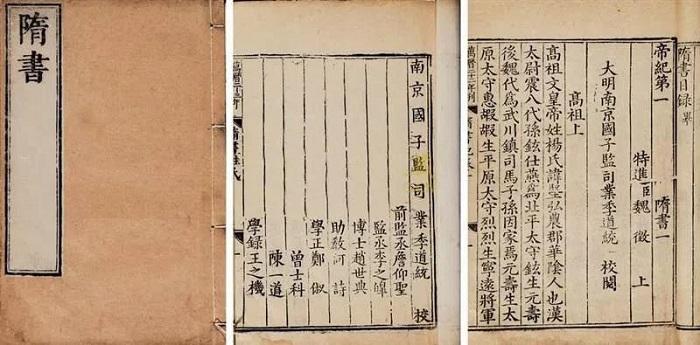 隋書
南京國子監司業季道統 校
前監丞詹仰聖
監丞李之皥
博士趙世典
助敎 詩
學正鄭俶
曾士科
陳一道
學錄王之機
隋書姓氏
隋書目錄畢
帝紀第一 隋書一
特進臣魏徵 上
大明南京國子監司業季道統 校閱
高祖上
高祖文皇帝姓楊氏諱堅弘農郡華陰人也漢
太尉震八代孫鉉仕燕爲北平太守鉉生元壽
後魏代爲武川鎮司馬子孫因家焉元壽生太
原太守惠嘏嘏生平原太守烈烈生寧遠將軍
萬曆二十二年刊